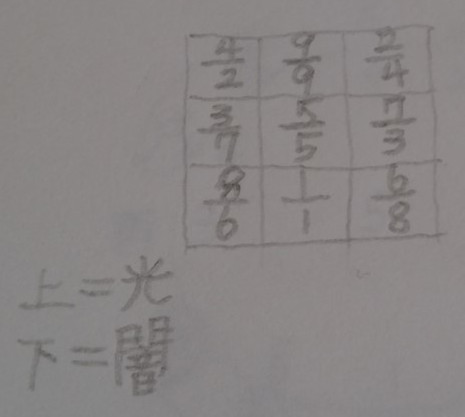 4/2 9/9 2/4
3/7 5/5 7/3
8/6 1/1 6/8
上=光
下=闇